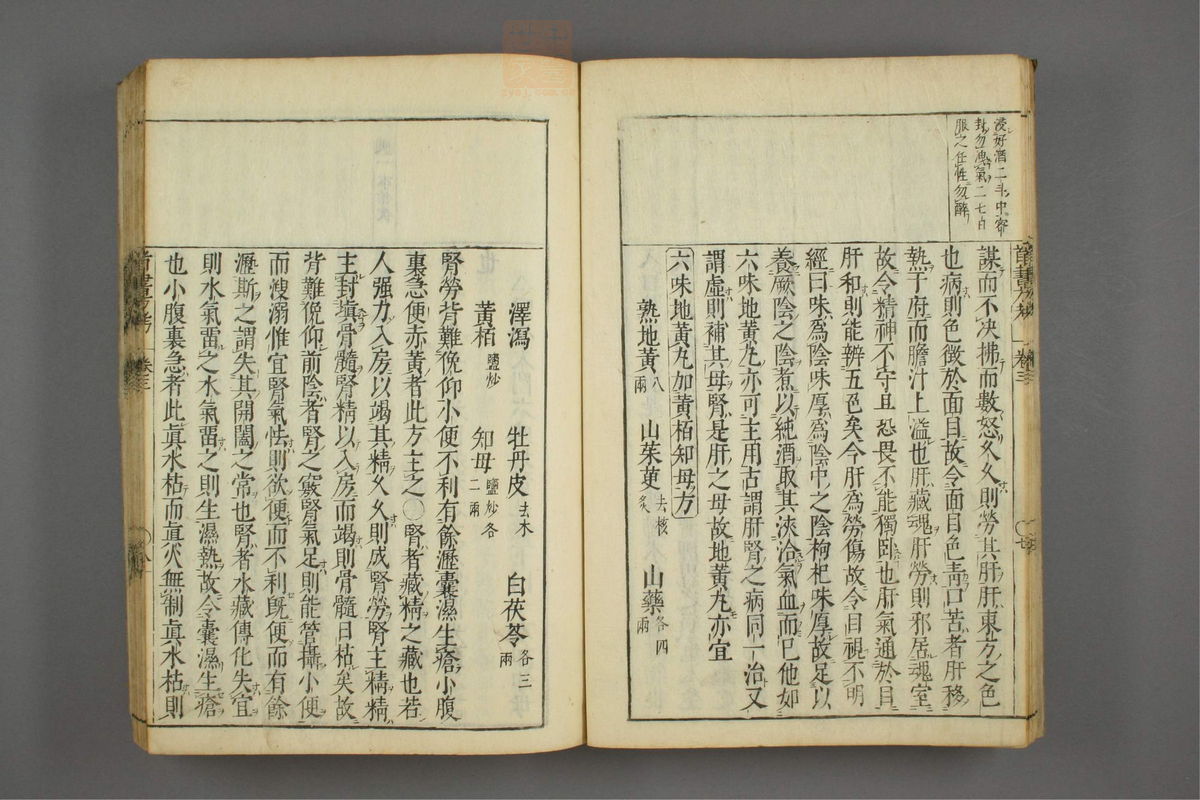 浸好酒二斗中密
封勿洩氣二七日
服之任性勿醉
謀而不決拂而數怒久久則勞其肝肝東方之色
也病則色徵於面目故令面目色靑口苦者肝移
熱于府而膽汁上溢也肝藏魂肝勞則邪居魂室
故令精神不守且恐畏不能獨卧也肝氣通於目
肝和則能辨五色矣今肝爲勞傷故令目視不明
經曰味爲陰味厚爲陰中之陰枸杞味厚故足以
養厥陰之陰煮以純酒取其浹洽氣血而巳他如
六味地黄丸亦可主用古謂肝腎之病同一治又
謂虛則補其母腎是肝之母故地黄丸亦宜
六味地黄丸加黄栢知母方
熟地黄八兩 山茱萸去核炙 山藥各四兩
卷三
七
澤瀉 牡丹皮去木 白茯苓各三兩
黃栢鹽炒 知母二兩鹽炒各
腎勞背難俛仰小便不利有餘瀝囊濕生瘡小腹
裏急便赤黃者此方主之○腎者藏精之藏也若
人强力入房以竭其精久久則成腎勞腎主精精
主封塡骨髓腎精以入房而竭則骨髓日枯矣故
背難俛仰前陰者腎之竅腎氣足則能管攝小便
而溲溺惟宜腎氣怯則欲便而不利旣便而有餘
瀝斯之謂失其開闔之常也腎者水藏傳化失宜
則水氣畱之水氣畱之則生濕熱故令囊濕生瘡
也小腹裏急者此眞水枯而眞火無制眞水枯則
卷三
八